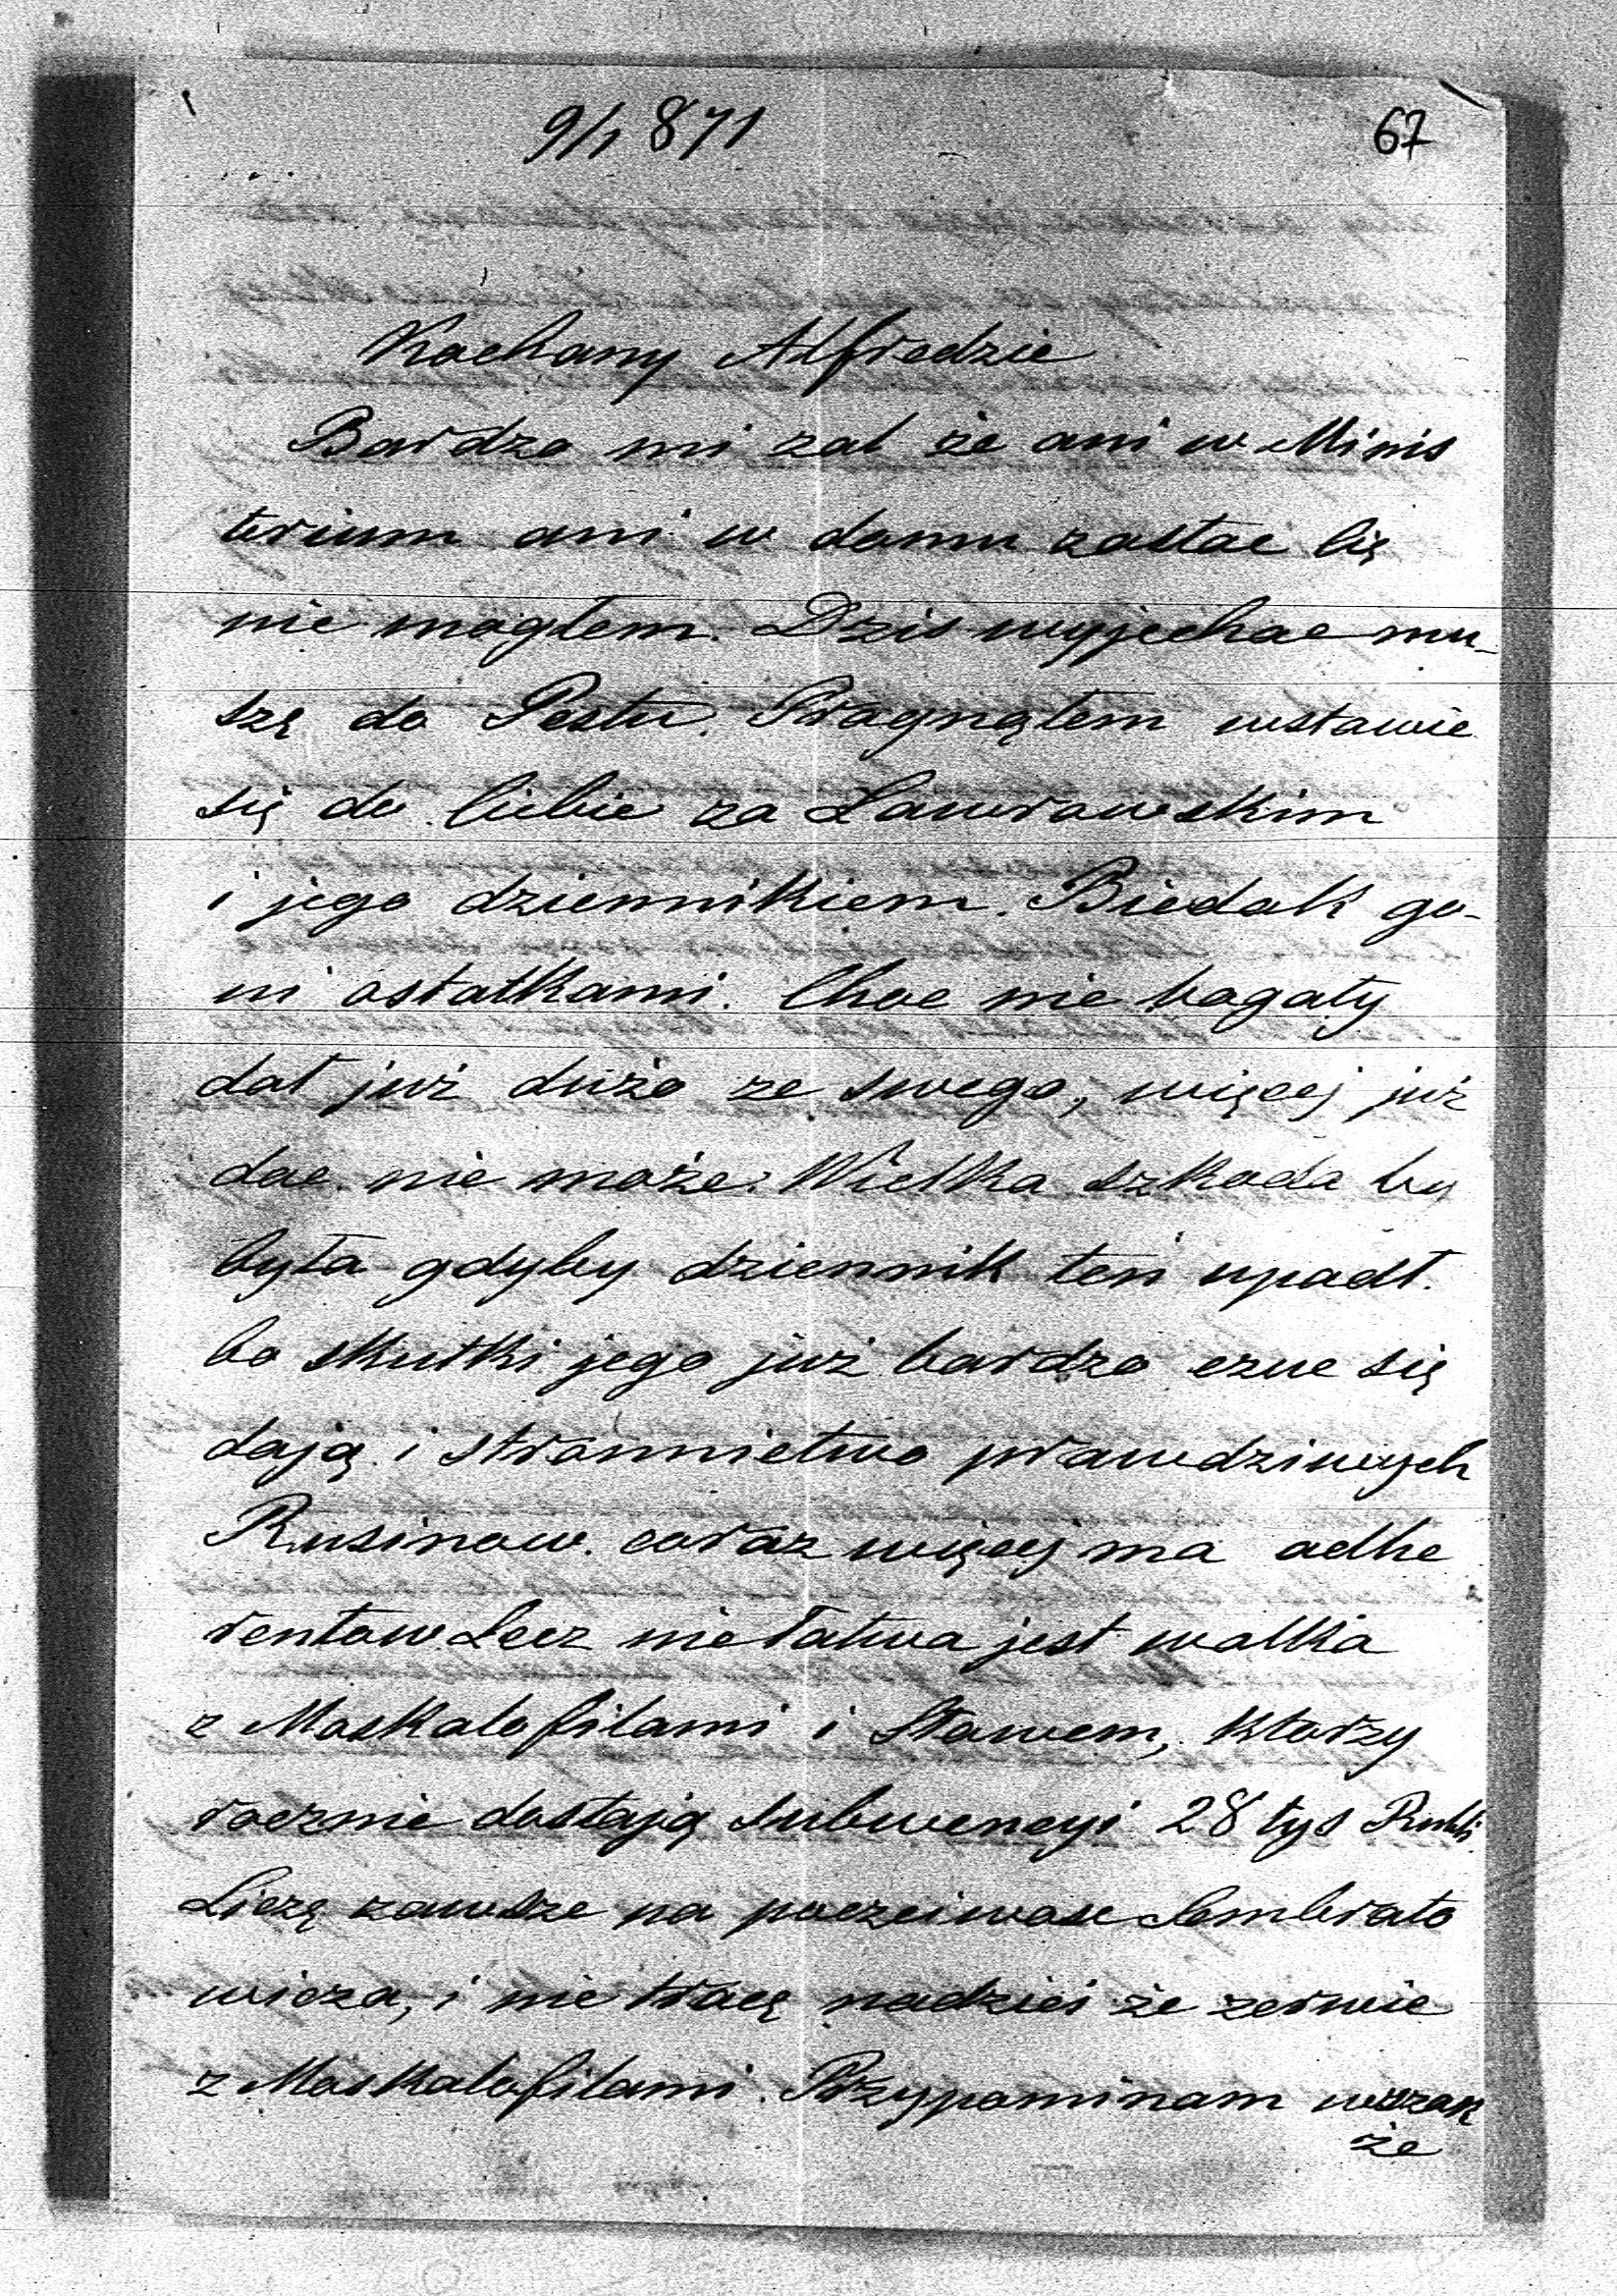 9/1 871
67
Kochany Alfredzie
Bardzo mi zal że ani w Minis
terium ani w domu zastac Cię
nie mogłem. Dzis wyjechac mu-
szę do Pestu. Pragnąłem wstawic
się do Ciebie za Ławrowskim
i jego dziennikiem. Biedak go-
ni ostatkami. Choc nie bogaty
dał już dużo ze swego, więcej już
dac nie może. Wielka szkoda by
była gdyby dziennik ten upadł.
bo skutki jego już bardzo czuc się
dają i stronnictwo prawdziwych
Rusinow. coraz więcej ma adhe
rentow Lecz nie łatwa jest walka
z Moskalofilami i Słowem, ktorzy
rocznie dostają subwencyi 28 tys Rubli
Liczę zawsze na poczciwosc Sembrato
wicza, i nie tracę nadziei że zerwie
z Moskalofilami. Przypominam wszak
że